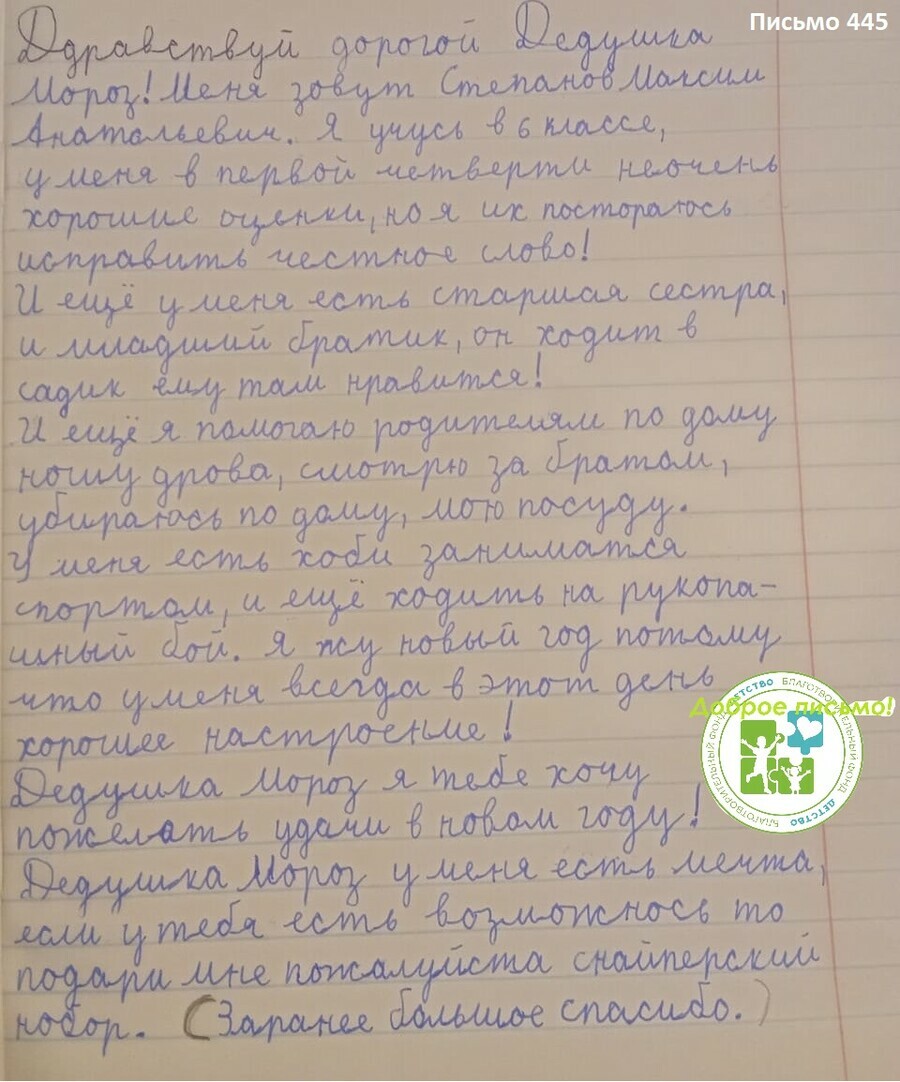 Письмо 445
Ддравствуй дорогой Дедушка
Мороз! Меня зовут Степанов Максим
Анатольевич. Я учусь в 6 классе,
у меня в первой четверти неочень
хорошие оценки, но я их постораюсь
исправить честное слово!
И ещё у меня есть старшая сестра,
и младший братик, он ходит в
садик ему там нравится!
И ещё я помогаю родителям по дому
ношу дрова, смотрю за братом,
убираюсь по дому, мою посуду.
У меня есть хоби заниматся
спортом, и ещё ходить на рукопа-
шный бой. Я жу новый год потому
что у меня всегда в этот день
хорошее настроение!
Дедушка Мороз я тебе хочу
пожелать удачи в новом году!
Дедушка Мороз у меня есть мечта,
если у тебя есть возможнось то
подари мне пожалуйста снайперский
нобор. (Заранее большое спасибо.)
Доброе письмо!
БЛАГОТВОРИТЕЛЬНЫЙ ФОНД ДЕТСТВО
БЛАГОТВОРИТЕЛЬНЫЙ ФОНД ДЕТСТВО